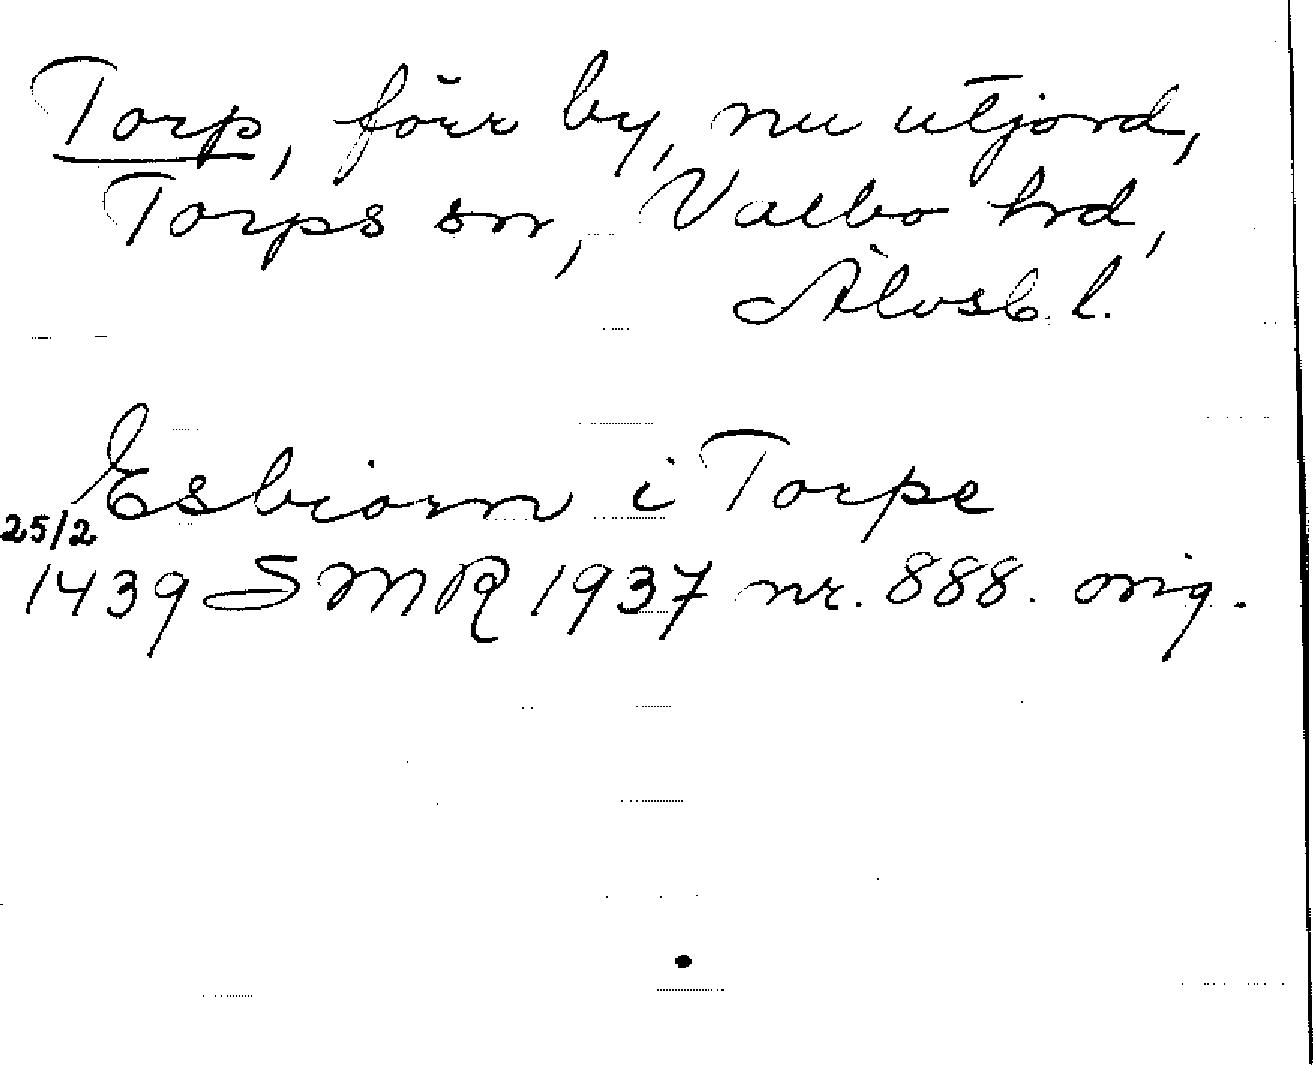 Torp, förr by, nu utjord,
Torps sn, Valbo hd,
Älvsb. l.
Esbiorn i Torpe
25/2
1439 SMR 1937 nr. 888. orig.